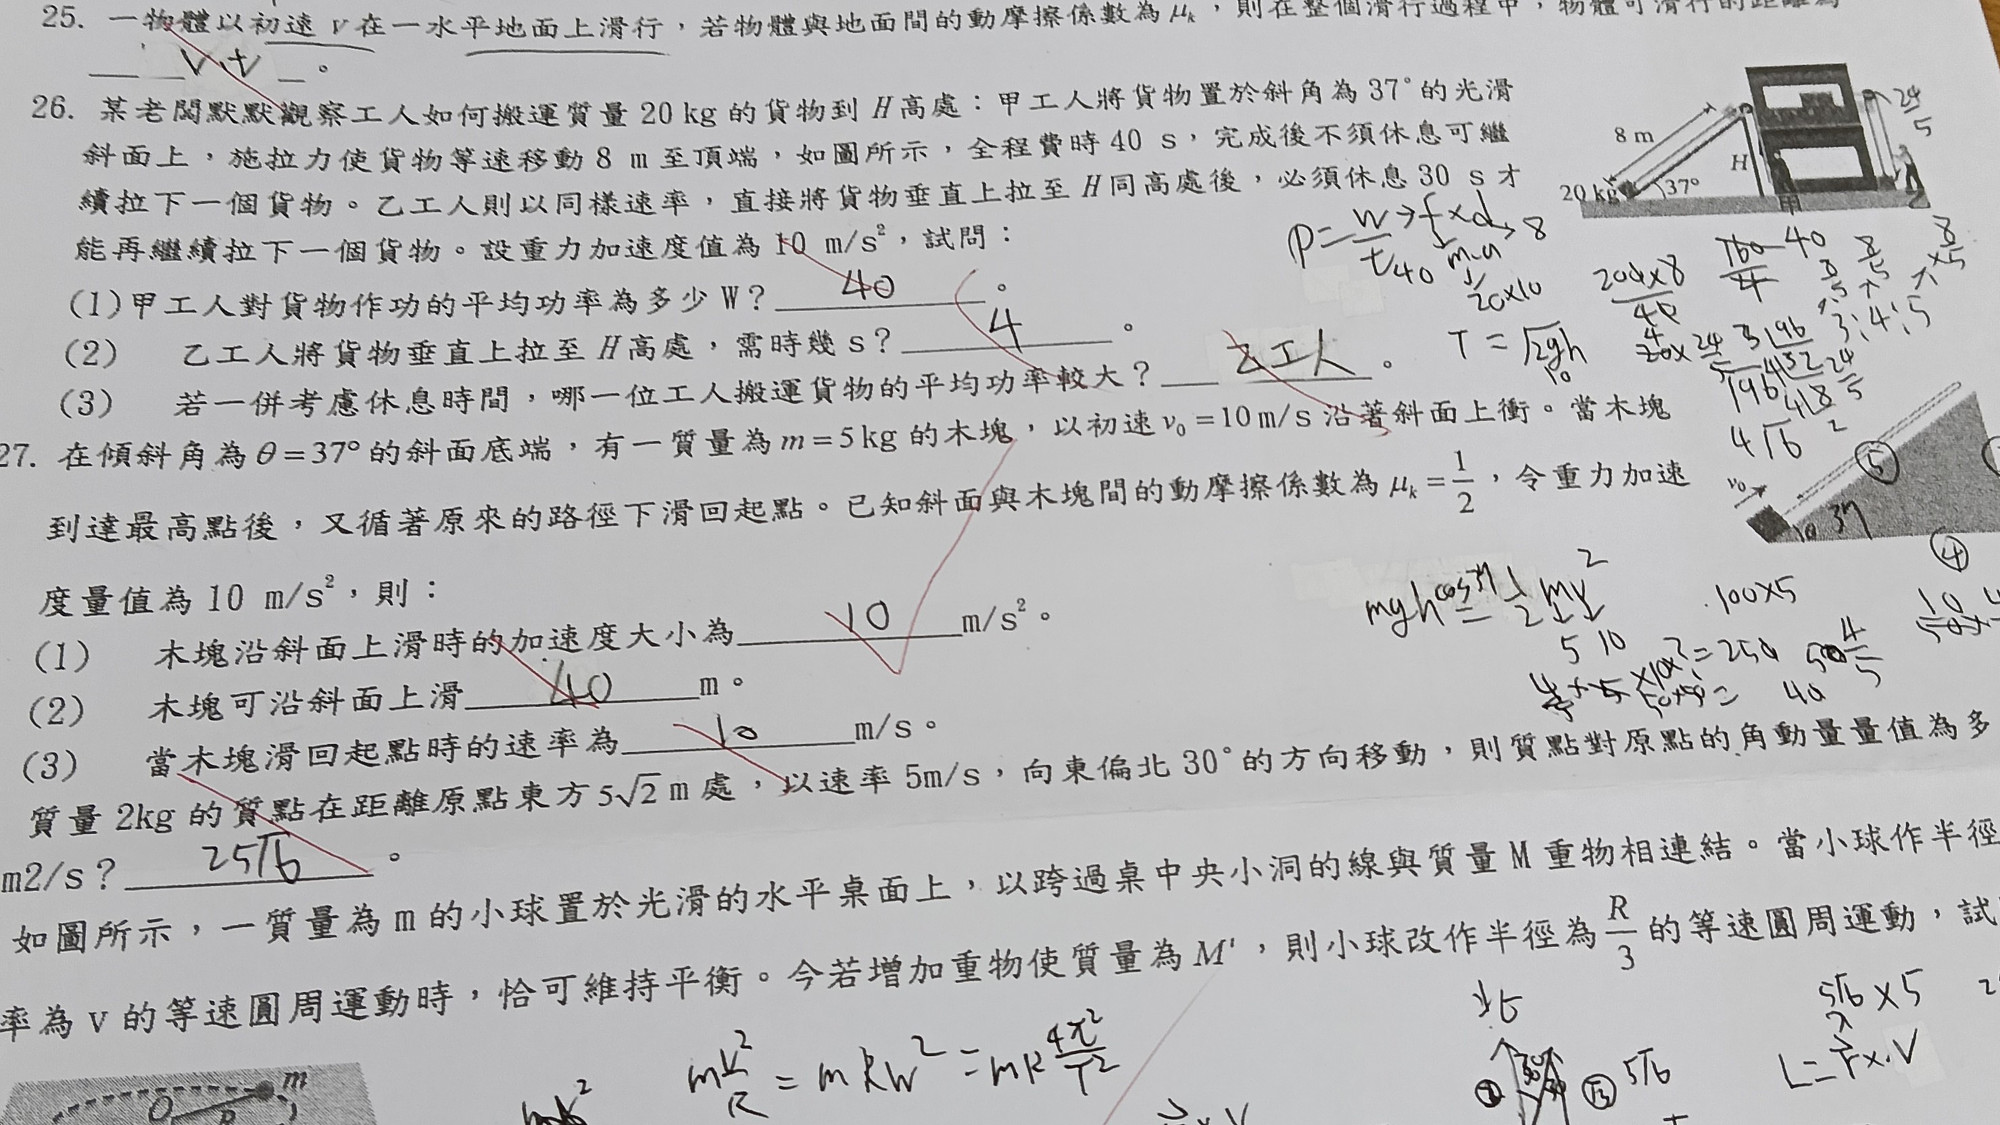 25. 一物體以初速 v 在一水平地面上滑行，若物體與地面間的動摩擦係數為 μk，則在整個滑行過程中，物體可滑行的距離為
v.t 。
26. 某老闆默默觀察工人如何搬運質量 20 kg 的貨物到 H 高處：甲工人將貨物置於斜角為 37° 的光滑
斜面上，施拉力使貨物等速移動 8 m 至頂端，如圖所示，全程費時 40 s，完成後不須休息可繼
續拉下一個貨物。乙工人則以同樣速率，直接將貨物垂直上拉至 H 同高處後，必須休息 30 s 才
能再繼續拉下一個貨物。設重力加速度值為 10 m/s²，試問：
(1)甲工人對貨物作功的平均功率為多少 W？ 40 。
(2) 乙工人將貨物垂直上拉至 H 高處，需時幾 s？ 4 。
(3) 若一併考慮休息時間，哪一位工人搬運貨物的平均功率較大？ 乙工人 。
8 m
H
20 kg
37°
24/5
甲
P=W/t→f×d→8
40 m·a
20×10
200×8/40
160/4 40
T=√2gh
10
3:4:5
4√6
27. 在傾斜角為 θ=37° 的斜面底端，有一質量為 m=5 kg 的木塊，以初速 v₀=10 m/s 沿著斜面上衝。當木塊
到達最高點後，又循著原來的路徑下滑回起點。已知斜面與木塊間的動摩擦係數為 μk=1/2，令重力加速
度量值為 10 m/s²，則：
(1) 木塊沿斜面上滑時的加速度大小為 10 m/s²。
(2) 木塊可沿斜面上滑 40 m。
(3) 當木塊滑回起點時的速率為 10 m/s。
v₀
⑤
37
④
mgh cos37=1/2mv²
5 10
100×5
40
質量 2kg 的質點在距離原點東方 5√2 m 處，以速率 5m/s，向東偏北 30° 的方向移動，則質點對原點的角動量量值為多
m2/s？ 25√6 。
如圖所示，一質量為 m 的小球置於光滑的水平桌面上，以跨過桌中央小洞的線與質量 M 重物相連結。當小球作半徑
率為 v 的等速圓周運動時，恰可維持平衡。今若增加重物使質量為 M'，則小球改作半徑為 R/3 的等速圓周運動，試
m
O
R
mv²/R=mRw²=mR4π²/T²
北
5√6
5√6×5
L=r×.V